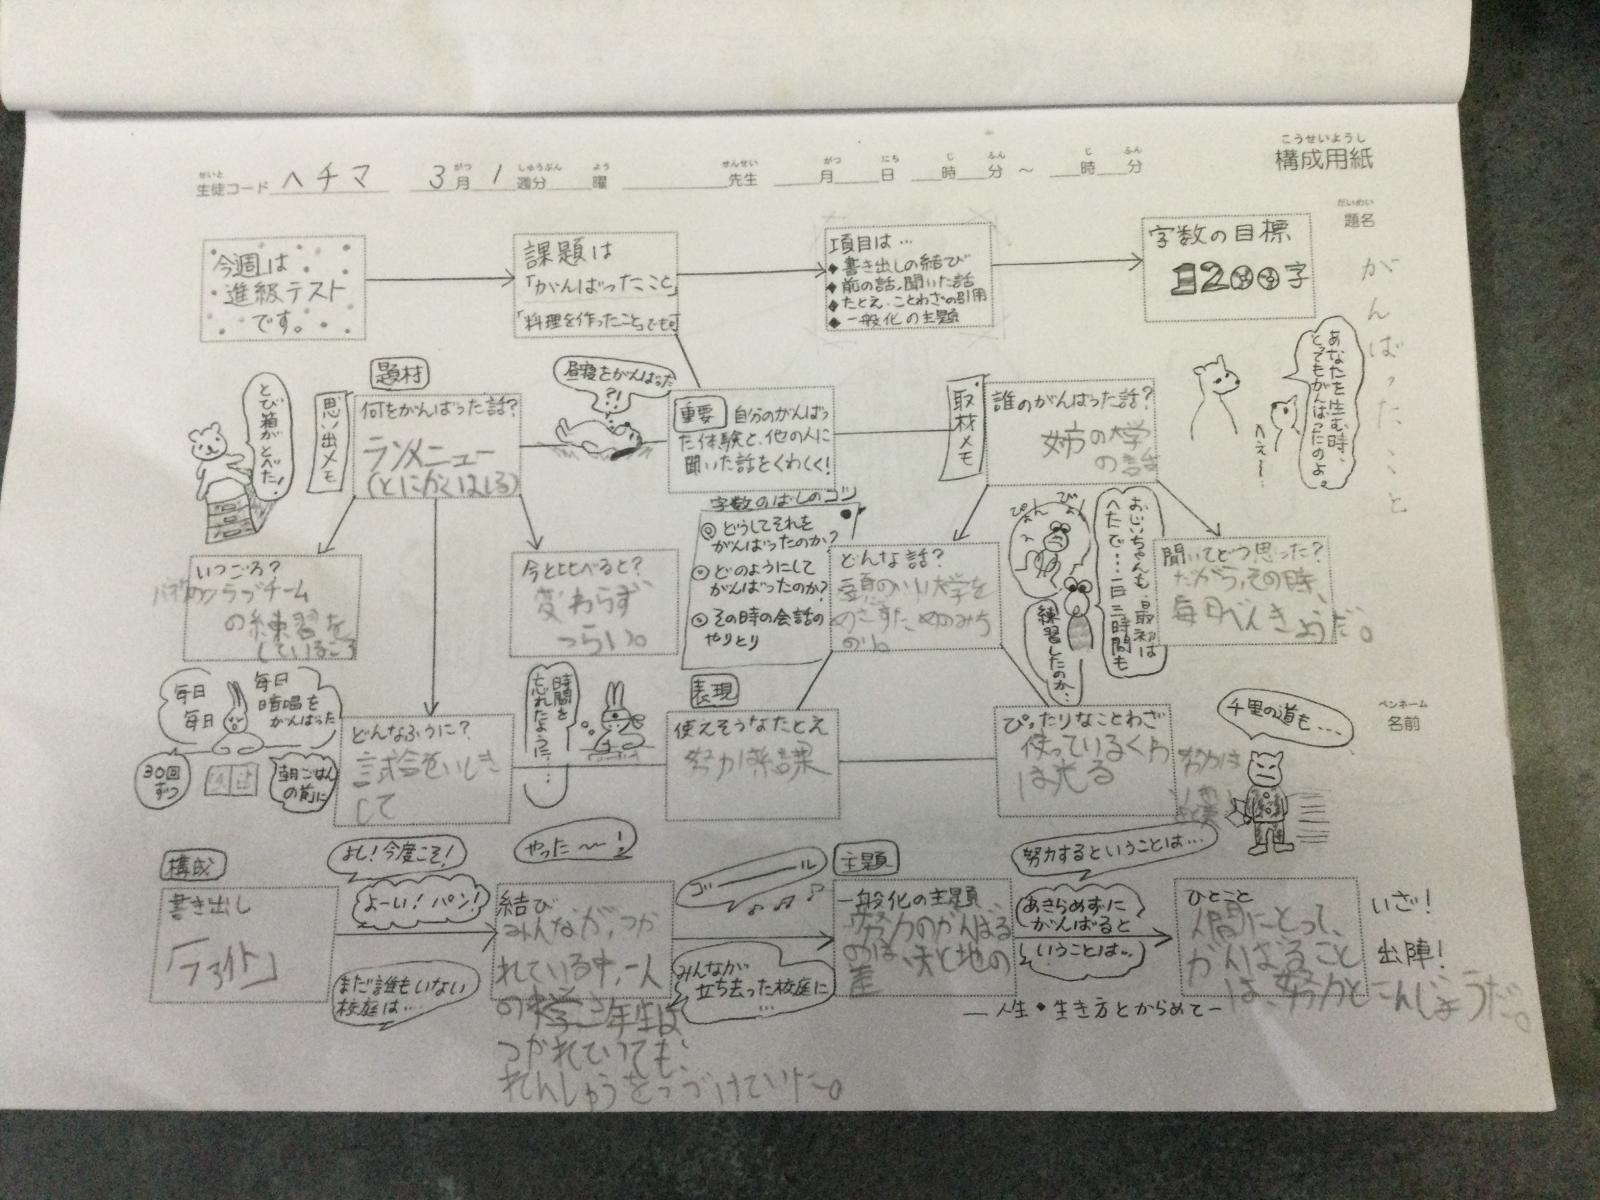 こうせいようし
構成用紙
せいと がつ しゅうぶん よう せんせい がつ にち じ ふん じ ふん
生徒コード ヘチマ 3月 1週分 曜 先生 月 日 時 分 ～ 時 分
だいめい
題名
がんばったこと
今週は
進級テスト
です。
課題は
「がんばったこと」
「料理を作ったこと」でも可
項目は…
◆書き出しの結び
◆前の話,聞いた話
◆たとえ、ことわざの引用
◆一般化の主題
字数の目標
1200字
題材
思い出メモ
とび箱がとべた!
何をがんばった話?
ランメニュー
(とにかくはしる)
昼寝をがんばった
?!
重要 自分のがんばっ
た体験と、他の人に
聞いた話をくわしく!
取材メモ
誰のがんばった話?
姉の大学
の話
へぇ～…
あなたを生む時、
とってもがんばったのよ。
いつごろ?
のクラブチーム
の練習を
しているころ
今と比べると?
変わらず
つらい。
字数のばしのコツ
◎どうしてそれを
がんばったのか?
◎どのようにして
がんばったのか?
◎その時の会話の
やりとり
どんな話?
頭のいい大学を
めざすため
ぴょん
びょん
おじいちゃんも、最初は
へたで…一日三時間も
練習したのか…
聞いてどう思った?
だから、その時、
毎日べんきょうだ。
毎日
毎日
毎日
暗唱を
がんばった
30回
ずつ
朝ごはん
の前に
どんなふうに?
試合をいしき
して
時間を
忘れたように…
表現
使えそうなたとえ
努力は
ぴったりなことわざ
使っているくわ
は光る
努力は
千里の道も…
ペンネーム
名前
構成
書き出し
よし!今度こそ!
よーい!パン!
まだ誰もいない
校庭は…
やった～!
結び
みんなが、つか
れている中、一人
の中学三年生は
つかれていても、
れんしゅうをつづけていた。
ゴール
みんなが
立ち去った校庭に
…
主題
一般化の主題
努力のがんばる
のは、天と地の
差
努力するということは…
あきらめずに
がんばると
いうことは…
ひとこと
人間にとって、
がんばること
は、努力とこんじょうだ。
いざ!
出陣!
―人生・生き方とからめて―